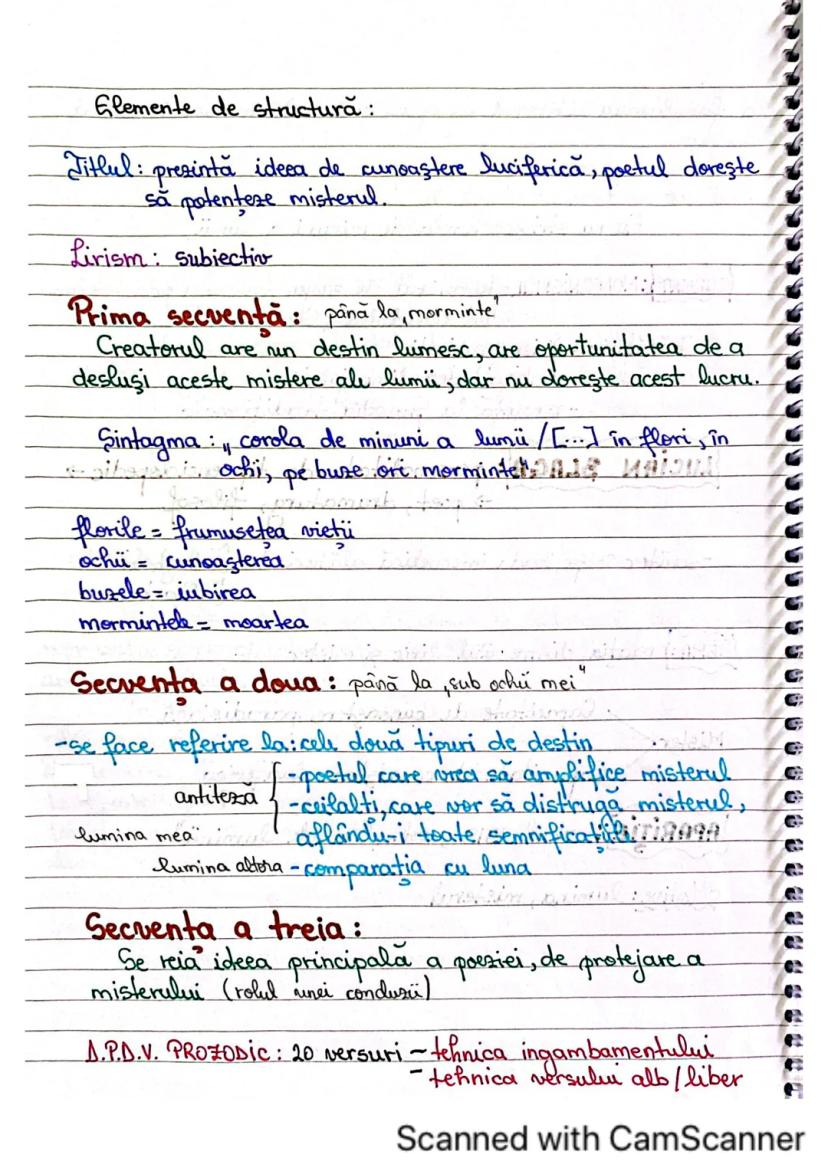 Elemente de structură:
Titlul: prezintă ideea de cunoaștere luciferică, poetul dorește
să potențeze misterul.
Lirism: subiectiv
Prima secvență: până la „morminte"
Creatorul are un destin lumesc, are oportunitatea de a
desluși aceste mistere ale lumii, dar nu dorește acest lucru.
Sintagma: „corola de minuni a lumii /[...] în flori, în
ochi, pe buze ori morminte".
florile = frumusețea vieții
ochii = cunoașterea
buzele = iubirea
mormintele = moartea
Secvența a doua: până la „sub ochii mei"
-se face referire la: cele două tipuri de destin
antiteză { -poetul care vrea să amplifice misterul
-ceilalți, care vor să distrugă misterul,
lumina mea" aflându-i toate semnificațiile
lumina altora -comparația cu luna
Secvența a treia:
Se reia ideea principală a poeziei, de protejare a
misterului (rolul unei concluzii)
D.P.D.V. PROZODIC: 20 versuri - tehnica ingambamentului
- tehnica versului alb/liber
Scanned with CamScanner